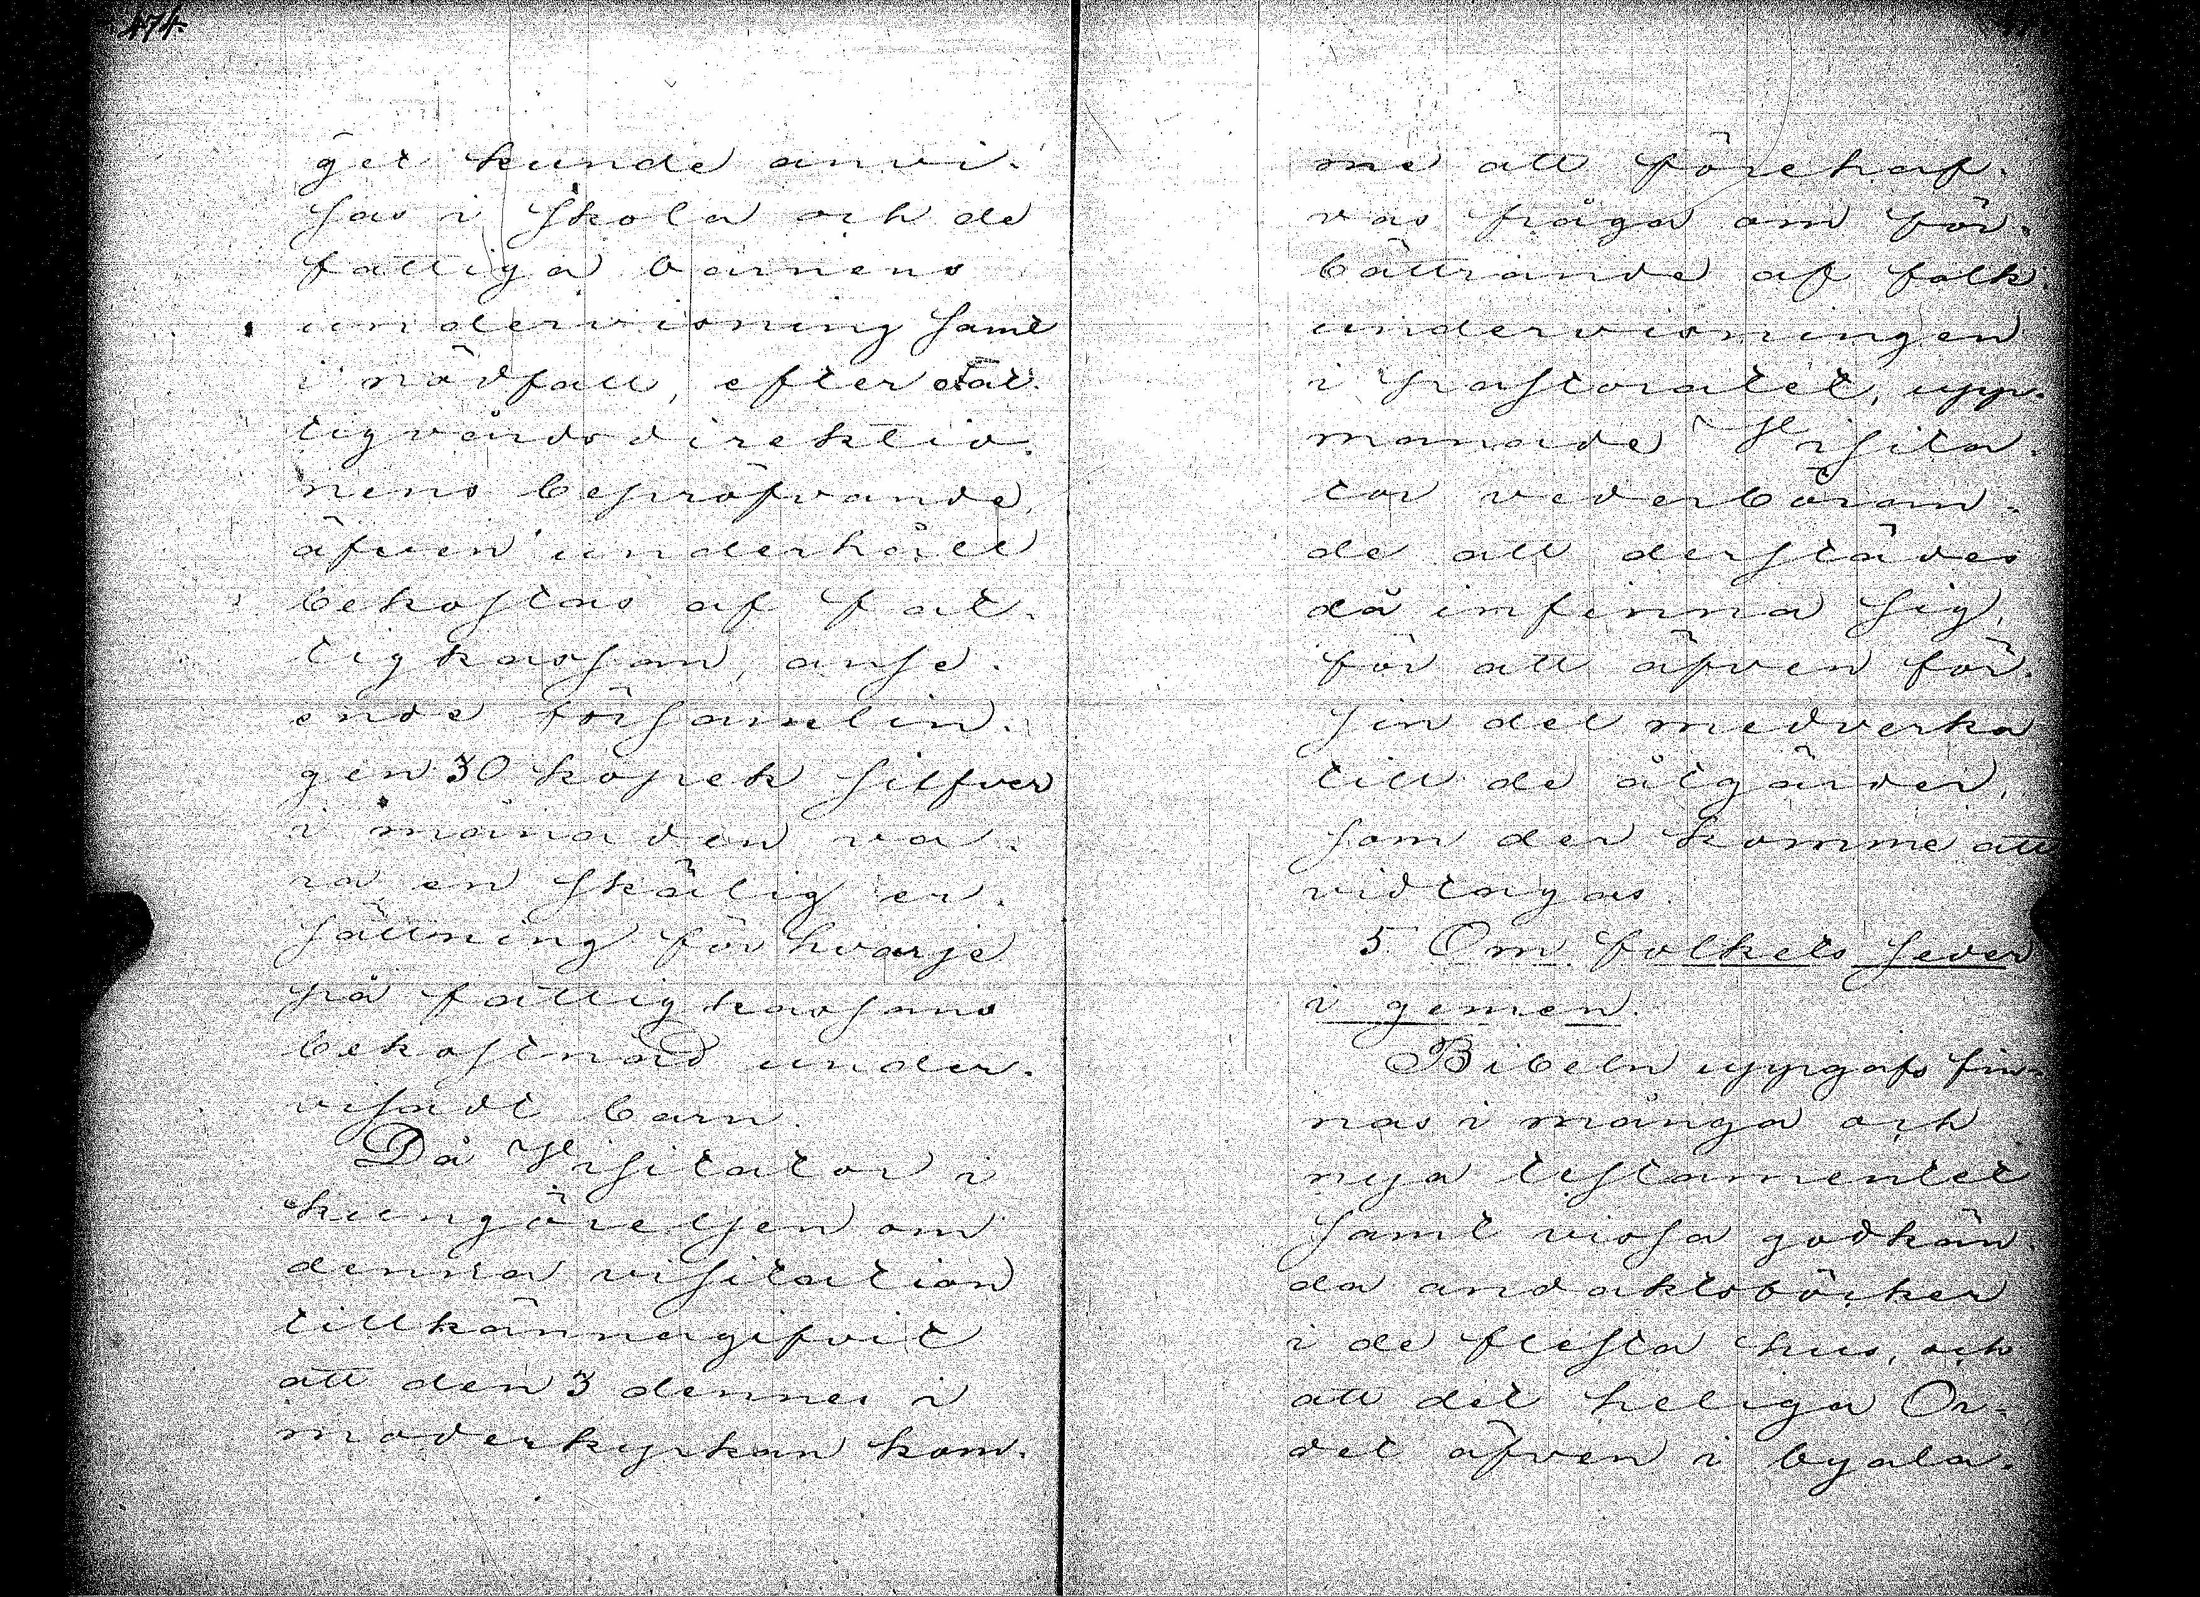 474.
get kunde anvi-
sas i skola och de
fattiga barnens
undervisning samt
i nödfall, efter Fat-
tigvårdsdirektio-
nens bepröfvande,
äfven underhåll
bekostas af fat-
tigkassan, anse-
ende församlin-
gen 30 kopek silfver
i månaden va-
ra en skälig er-
sättning för hvarje
på fattigkassans
bekostnad under-
visadt barn.
Då Visitator i
kungörelsen om
denna visitation
tillkännagifvit
att den 3 dennes i
moderkyrkan kom-
me att förehaf-
vas fråga om för-
bättrande af folk
undervisningen
i pastoratet, upp-
manade Visita-
tor vederböran-
de att derstädes
då infinna sig,
för att äfven för
sin del medverka
till de åtgärder,
som der komme att
vidtagas.
5 Om folkets seder
i gemen.
Bibeln uppgafs fin-
nas i många och
nya testamentet
samt vissa godkän-
da andaktsböcker
i de flesta hus, och
att det heliga Or-
det äfven i byala-